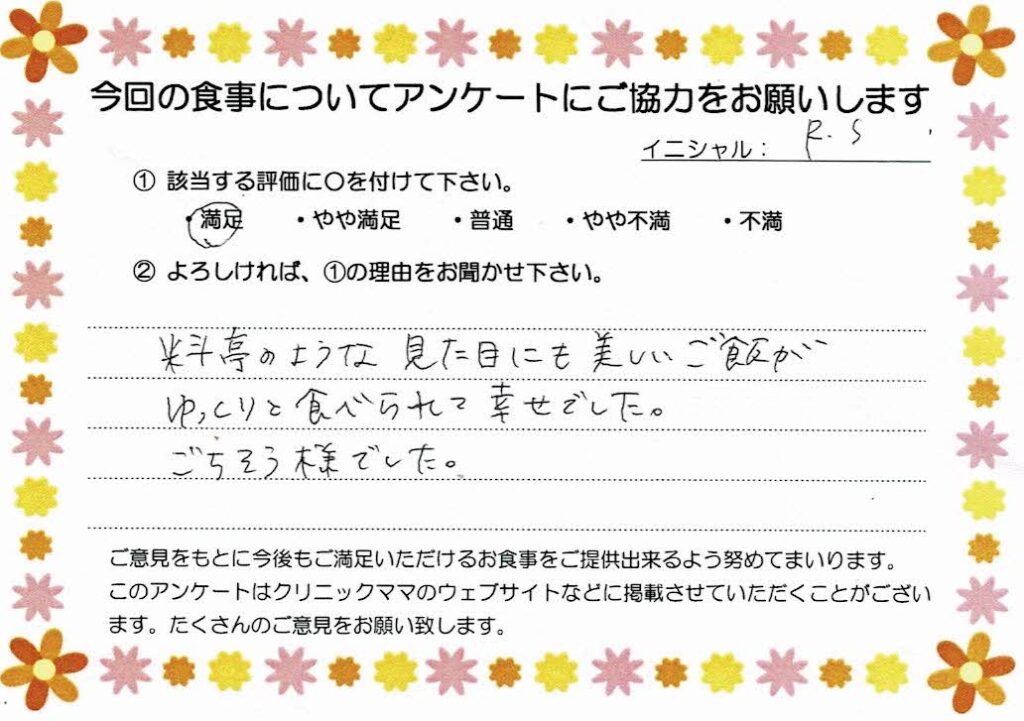 今回の食事についてアンケートにご協力をお願いします
イニシャル： R.S
① 該当する評価に〇を付けて下さい。
・満足 ・やや満足 ・普通 ・やや不満 ・不満
② よろしければ、①の理由をお聞かせ下さい。
料亭のような見た目にも美しいご飯が
ゆっくりと食べられて幸せでした。
ごちそう様でした。
ご意見をもとに今後もご満足いただけるお食事をご提供出来るよう努めてまいります。
このアンケートはクリニックママのウェブサイトなどに掲載させていただくことがござい
ます。たくさんのご意見をお願い致します。